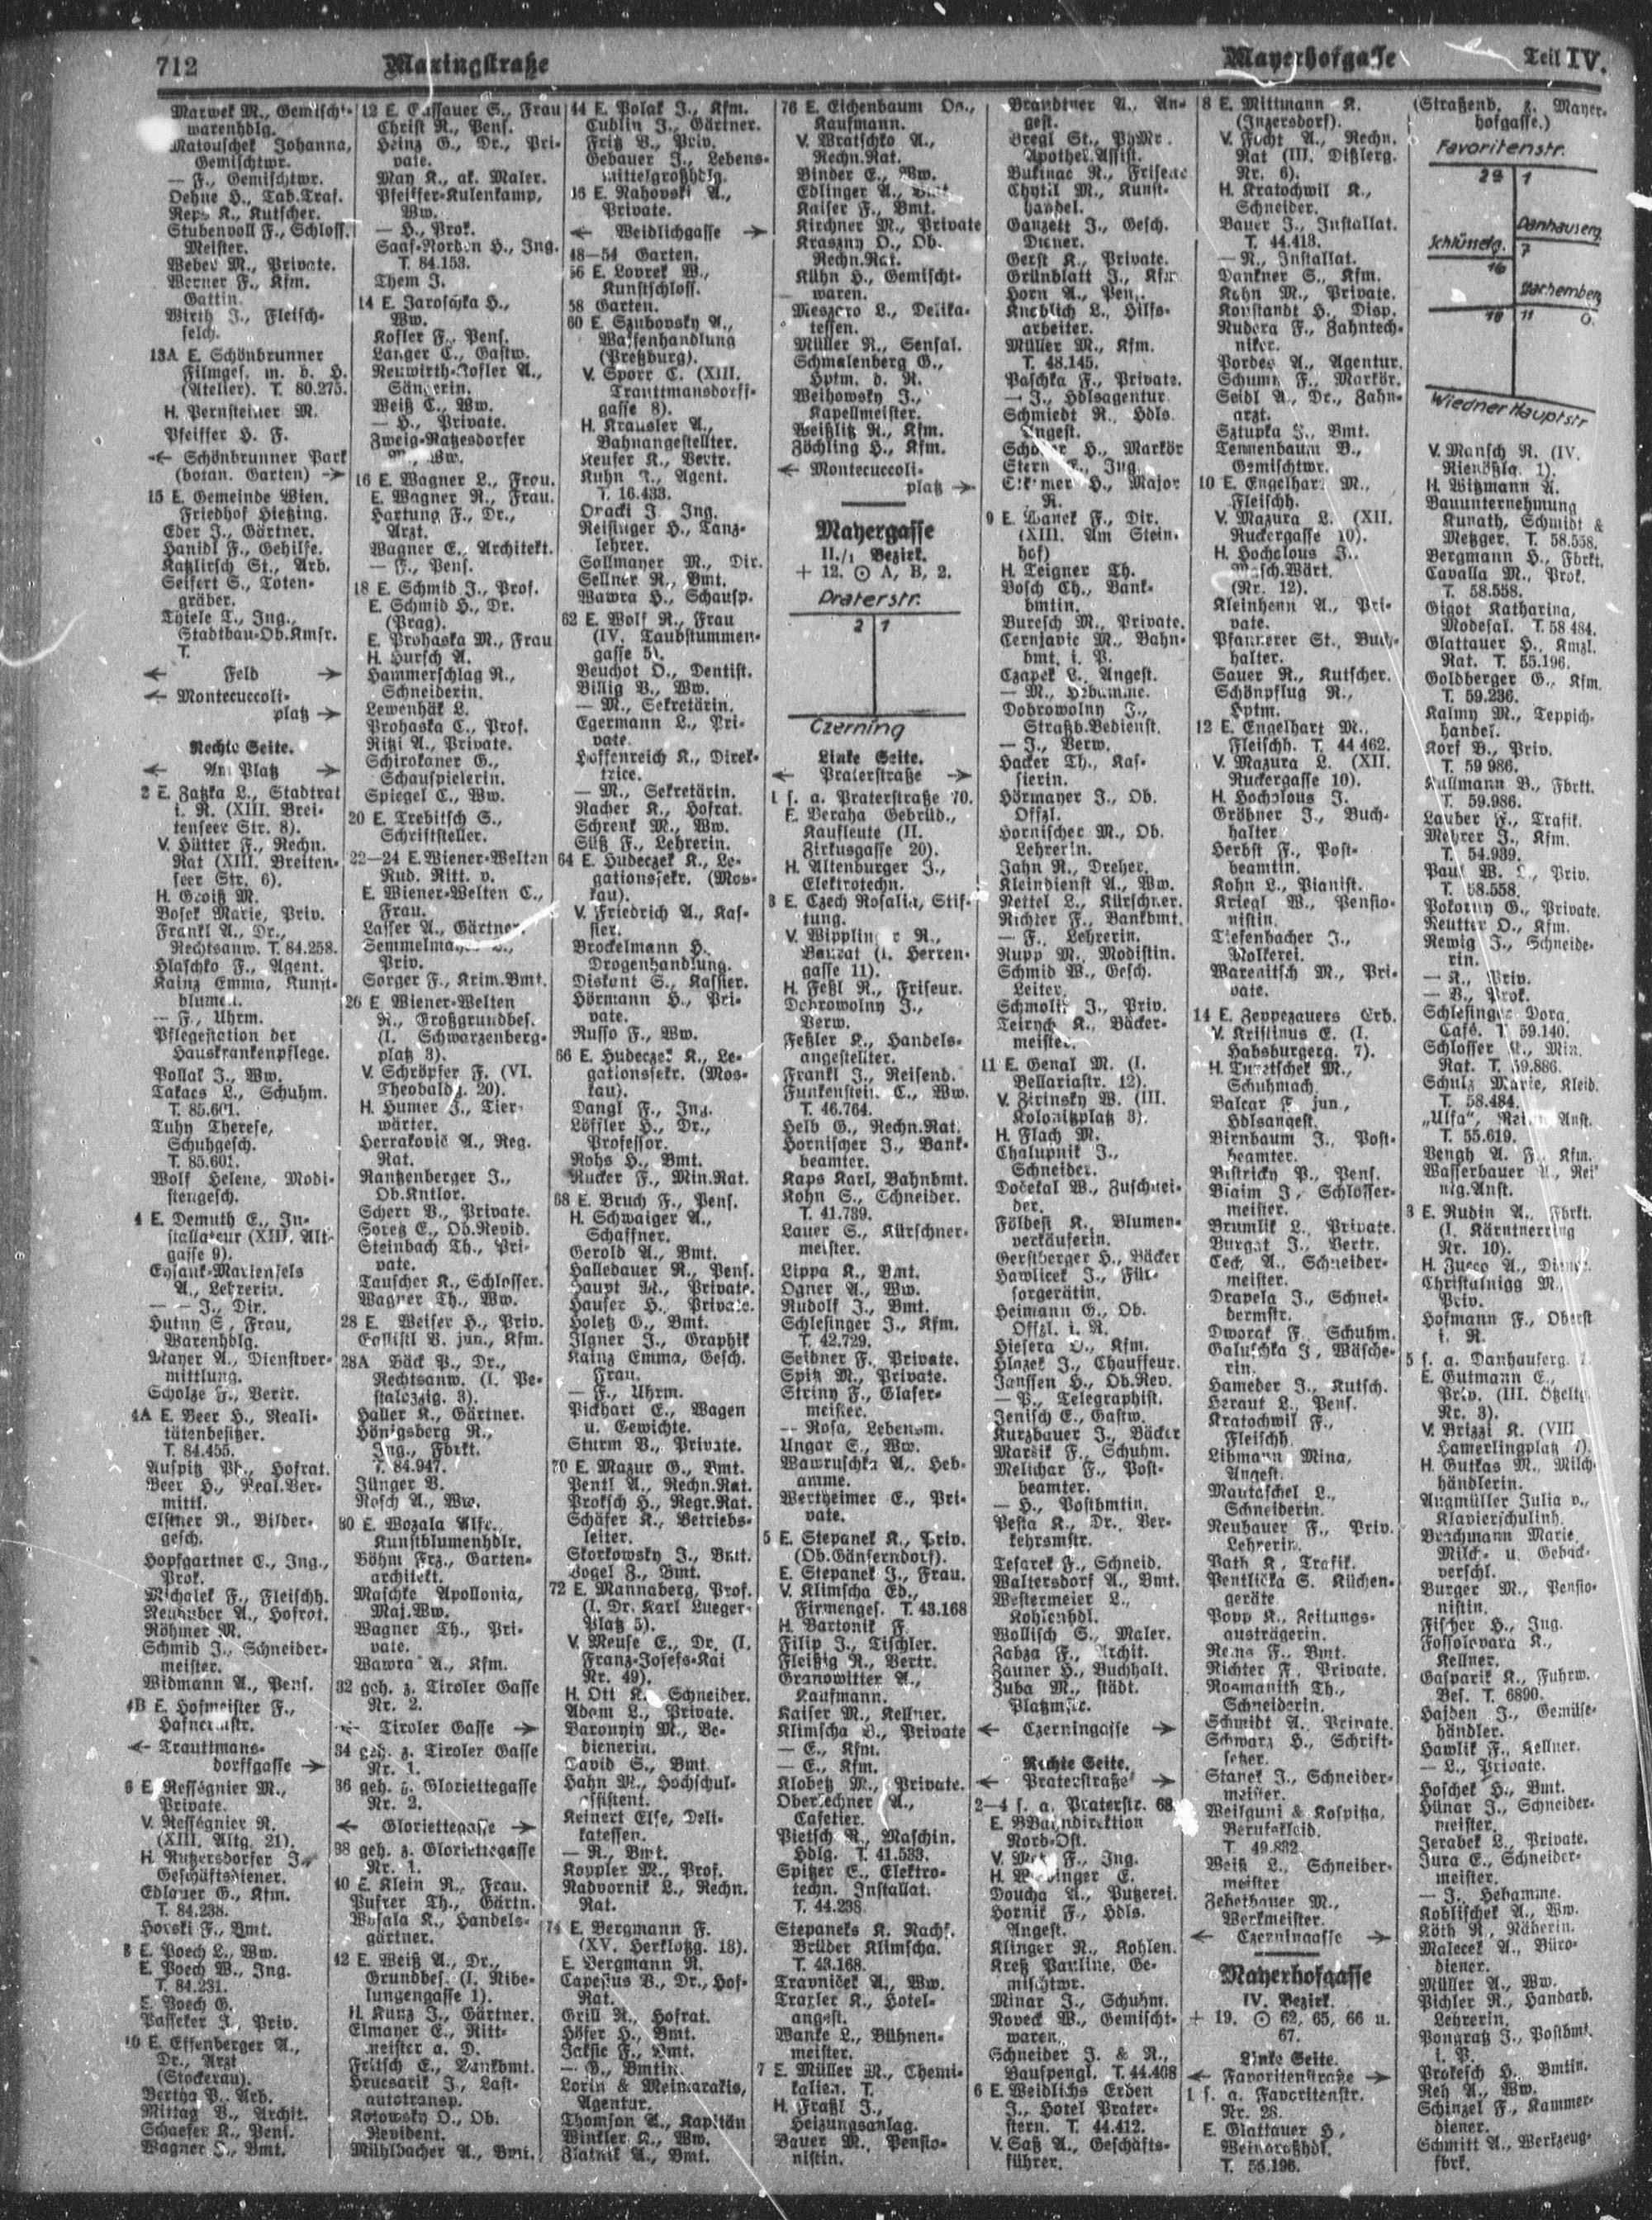 712
Maxingstraße
Mayerhofgasse
Teil IV.
Marwek M., Gemischt-
warenhdlg.
Matouschek Johanna,
Gemischtwr.
— F., Gemischtwr.
Oehne H., Tab.Traf.
Reps K., Kutscher.
Stubenvoll F., Schloss.
Meister.
Weber M., Private.
Werner F., Kfm.
Gattin.
Wirth J., Fleisch-
selch.
13A E. Schönbrunner
Filmges. m. b. H.
(Atelier). T. 80.275.
H. Pernsteiner M.
Pfeiffer H. F.
← Schönbrunner Park
(botan. Garten) →
15 E. Gemeinde Wien.
Friedhof Hietzing.
Eder J., Gärtner.
Hanidl F., Gehilfe.
Katzlirsch St., Arb.
Seifert S., Toten-
gräber.
Thiele T., Ing.,
Stadtbau-Ob.Kmsr.
T.
← Feld →
← Montecuccoli-
platz →
Rechte Seite.
← Am Platz →
2 E. Zatzka L., Stadtrat
i. R. (XIII. Brei-
tenseer Str. 8).
V. Hütter F., Rechn.
Rat (XIII. Breiten-
seer Str. 6).
H. Groiß M.
Bosek Marie, Priv.
Frankl A., Dr.,
Rechtsanw. T. 84.258.
Hlaschko F., Agent.
Kainz Emma, Kunst-
blumen.
— F., Uhrm.
Pflegestation der
Hauskrankenpflege.
Pollak J., Ww.
Takacs L., Schuhm.
T. 85.601.
Tuhy Therese,
Schuhgesch.
T. 85.601.
Wolf Helene, Modi-
stengesch.
4 E. Demuth E., In-
stallateur (XIII. Alt-
gasse 9).
Eysank-Marienfels
A., Lehrerin.
— — J., Dir.
Hutny S., Frau,
Warenhdlg.
Mayer A., Dienstver-
mittlung.
Scholze F., Vertr.
4A E. Beer H., Reali-
tätenbesitzer.
T. 84.455.
Auspitz Ph., Hofrat.
Beer H., Real.Ver-
mittl.
Elstner R., Bilder-
gesch.
Hopfgartner C., Ing.,
Prok.
Michalek F., Fleischh.
Neuhuber A., Hofrat.
Röhmer M.
Schmid J., Schneider-
meister.
Widmann A., Pens.
4B E. Hofmeister F.,
Hafnermstr.
← Trauttmans-
dorffgasse →
6 E. Rességnier M.,
Private.
V. Rességnier R.
(XIII. Altg. 21).
H. Rutzersdorfer J.,
Geschäftsdiener.
Edlauer G., Kfm.
T. 84.238.
Horski F., Bmt.
8 E. Poech L., Ww.
E. Poech W., Ing.
T. 84.231.
E. Poech G.
Passeker J., Priv.
10 E. Effenberger A.,
Dr., Arzt
(Stockerau).
Bertha P., Arb.
Mittag B., Archit.
Schaefer K., Pens.
Wagner S., Bmt.
12 E. Cassauer S., Frau
Christ R., Pens.
Heinz G., Dr., Pri-
vate.
May K., ak. Maler.
Pfeiffer-Kulenkamp,
Ww.
— H., Prok.
Saaf-Norden H., Ing.
T. 84.153.
Them J.
14 E. Jaroschka H.,
Ww.
Kofler F., Pens.
Langer C., Gastw.
Neuwirth-Kofler A.,
Sängerin.
Weiß C., Ww.
— H., Private.
Zweig-Ratzesdorfer
Ww.
16 E. Wagner L., Frau.
E. Wagner R., Frau.
Hartung F., Dr.,
Arzt.
Wagner E., Architekt.
— F., Pens.
18 E. Schmid J., Prof.
E. Schmid H., Dr.
(Prag).
E. Prohaska M., Frau
H. Hursch A.
Hammerschlag R.,
Schneiderin.
Lewenhäk L.
Prohaska C., Prof.
Ritzi A., Private.
Schirokaner G.,
Schauspielerin.
Spiegel C., Ww.
20 E. Trebitsch S.,
Schriftsteller.
22—24 E. Wiener-Welten
Rud. Ritt. v.
E. Wiener-Welten C.,
Frau.
Lasser A., Gärtner.
Priv.
Sorger F., Krim.Bmt.
26 E. Wiener-Welten
R., Großgrundbes.
(I. Schwarzenberg-
platz 3).
V. Schröpfer F. (VI.
Theobaldg. 20).
H. Humer J., Tier-
wärter.
Herrakovič A., Reg.
Rat.
Rantzenberger J.,
Ob.Kntlor.
Scherr V., Private.
Soretz E., Ob.Revid.
Steinbach Th., Pri-
vate.
Tauscher K., Schlosser.
Wagner Th., Ww.
28 E. Weiser H., Priv.
Egllistl B. jun., Kfm.
28A Bäck P., Dr.,
Rechtsanw. (I. Pe-
stalozzig. 3).
Haller K., Gärtner.
Hönigsberg R.,
Ing., Fbrkt.
T. 84.947.
Jünger B.
Rosch A., Ww.
30 E. Wozala Alfr.,
Kunstblumenhdlr.
Böhm Frz., Garten-
architekt.
Maschke Apollonia,
Maj.Ww.
Wagner Th., Pri-
vate.
Wawra A., Kfm.
32 geh. z. Tiroler Gasse
Nr. 2.
← Tiroler Gasse →
34 geh. z. Tiroler Gasse
Nr. 1.
36 geh. z. Gloriettegasse
Nr. 2.
← Gloriettegasse →
38 geh. z. Gloriettegasse
Nr. 1.
40 E. Klein R., Frau.
Pufrer Th., Gärtn.
Wosala K., Handels-
gärtner.
42 E. Weiß A., Dr.,
Grundbes. (I. Nibe-
lungengasse 1).
H. Kunz J., Gärtner.
Elmayer E., Ritt-
meister a. D.
Fritsch E., Bankbmt.
Hrucsarik J., Last-
autotransp.
Kotowsky O., Ob.
Revident.
Mühlbacher A., Bmt.
44 E. Polak J., Kfm.
Cublin J., Gärtner.
Fritz B., Priv.
Gebauer J., Lebens-
mittelgroßhdlg.
46 E. Nahovski A.,
Private.
← Weidlichgasse →
48—54 Garten.
56 E. Lovrek W.,
Kunstschloss.
58 Garten.
60 E. Szubovsky A.,
Waffenhandlung
(Preßburg).
V. Sporr C. (XIII.
Trauttmansdorff-
gasse 8).
H. Krausler A.,
Bahnangestellter.
Keuser K., Vertr.
Kuhn J., Agent.
T. 16.433.
Oracki J. Ing.
Reisinger H., Tanz-
lehrer.
Sallmayer M., Dir.
Sellner R., Bmt.
Wawra H., Schausp.
62 E. Wolf R., Frau
(IV. Taubstummen-
gasse 5).
Beuchot O., Dentist.
Billig B., Ww.
— M., Sekretärin.
Egermann L., Pri-
vate.
Hoffenreich K., Direk-
trice.
— M., Sekretärin.
Racher K., Hofrat.
Schrenk M., Ww.
Süß F., Lehrerin.
64 E. Hudeczek K., Le-
gationssekr. (Mos-
kau).
V. Friedrich A., Kas-
sier.
Brockelmann H.,
Drogenhandlung.
Diskant S., Kassier.
Hörmann H., Pri-
vate.
Russo F., Ww.
66 E. Hudeczek K., Le-
gationssekr. (Mos-
kau).
Dangl F., Ing.
Löffler H., Dr.,
Professor.
Rohs H., Bmt.
Rucker F., Min.Rat.
68 E. Bruch F., Pens.
H. Schwaiger A.,
Schaffner.
Gerold A., Bmt.
Halledauer R., Pens.
Haupt M., Private.
Hauser H., Private.
Holetz G., Bmt.
Ilgner J., Graphik
Kainz Emma, Gesch.
Frau.
— F., Uhrm.
Pickhart E., Wagen
u. Gewichte.
Sturm B., Private.
70 E. Mazur G., Bmt.
Pentl A., Rechn.Rat.
Proksch H., Regr.Rat.
Schäfer K., Betriebs-
leiter.
Skorkowsky J., Bmt.
Vogel Z., Bmt.
72 E. Mannaberg, Prof.
(I. Dr. Karl Lueger-
Platz 5).
V. Meuse E., Dr. (I.
Franz-Josefs-Kai
Nr. 49).
H. Ott K., Schneider.
Adam L., Private.
Baronyiy M., Be-
dienerin.
David S., Bmt.
Hahn M., Hochschul-
assistent.
Keinert Else, Deli-
katessen.
— R., Bmt.
Koppler M., Prof.
Nadvornik L., Rechn.
Rat.
74 E. Bergmann F.
(XV. Herklotzg. 18).
E. Bergmann R.
Capesius B., Dr., Hof-
Rat.
Grill R., Hofrat.
Höfer H., Bmt.
Jaksie F., Bmt.
— G., Bmtin.
Lorin & Meimarakis,
Agentur.
Thomson A., Kapitän
Winkler K., Ww.
Zlatnik A., Bmt.
76 E. Eichenbaum Os.,
Kaufmann.
V. Wratschko A.,
Rechn.Rat.
Binder E., Ww.
Edlinger A., Bmt.
Kaiser F., Bmt.
Kirchner M., Private
Kraszny O., Ob.
Rechn.Rat.
Kühn H., Gemischt-
waren.
Meszaro L., Delika-
tessen.
Müller R., Sensal.
Schmalenberg G.,
Hptm. d. R.
Weihowsky J.,
Kapellmeister.
Weißlitz R., Kfm.
Zöchling H., Kfm.
← Montecuccoli-
platz →
Mayergasse
II./1 Bezirk.
+ 12. ⊙ A, B, 2.
Praterstr.
2 1
Czerning
Linke Seite.
← Praterstraße →
1 s. a. Praterstraße 70.
E. Beraha Gebrüd.,
Kaufleute (II.
Zirkusgasse 20).
H. Altenburger J.,
Elektrotechn.
3 E. Czech Rosalia, Stif-
tung.
V. Wipplinger R.,
Baurat (I. Herren-
gasse 11).
H. Feßl R., Friseur.
Dobrowolny J.,
Verw.
Feßler K., Handels-
angestellter.
Frankl J., Reisend.
Funkenstein C., Ww.
T. 46.764.
Helb G., Rechn.Rat.
Hornischer J., Bank-
beamter.
Kaps Karl, Bahnbmt.
Kohn S., Schneider.
T. 41.789.
Lauer S., Kürschner-
meister.
Lippa K., Bmt.
Ogner A., Ww.
Rudolf J., Bmt.
Schlesinger J., Kfm.
T. 42.729.
Seidner F., Private.
Spitz M., Private.
Striny F., Glaser-
meister.
— Rosa, Lebensm.
Ungar E., Ww.
Wawruschka A., Heb-
amme.
Wertheimer E., Pri-
vate.
5 E. Stepanek K., Priv.
(Ob.Gänserndorf).
E. Stepanek J., Frau.
V. Klimscha Ed.,
Firmenges. T. 43.168
H. Bartonik F.
Filip J., Tischler.
Fleißig R., Vertr.
Granowitter A.,
Kaufmann.
Kaiser M., Kellner.
Klimscha B., Private
— E., Kfm.
— E., Kfm.
Klobetz M., Private.
Oberlechner A.,
Cafetier.
Pietsch R., Maschin.
Hdlg. T. 41.533.
Spitzer E., Elektro-
techn. Installat.
T. 44.238.
Stepaneks K. Nachf.
Brüder Klimscha.
T. 43.168.
Travniček A., Ww.
Traxler K., Hotel-
angest.
Wanke L., Bühnen-
meister.
7 E. Müller M., Chemi-
kalien. T.
H. Fraßl J.,
Heizungsanlag.
Bauer M., Pensio-
nistin.
Brandtner A., An-
gest.
Bregl St., PhMr.
Apothek.Assist.
Bukinac R., Friseur
Chytil M., Kunst-
handel.
Ganzett J., Gesch.
Diener.
Gerst K., Private.
Grünblatt J., Kfm.
Horn A., Pens.
Kneblich L., Hilfs-
arbeiter.
Müller M., Kfm.
T. 48.145.
Paschka F., Private.
— J., Hdlsagentur.
Schmiedt R., Hdls.
Angest.
H., Markör
Stern, Ing.
H., Major
R.
9 E. Wanek F., Dir.
(XIII. Am Stein-
hof)
H. Teigner Th.
Bosch Ch., Bank-
bmtin.
Buresch M., Private.
Cernjavic M., Bahn-
bmt. i. P.
Czapek L., Angest.
— M., Hebamme.
Dobrowolny J.,
Straßb.Bedienst.
— J., Verw.
Hacker Th., Kas-
sierin.
Hörmayer J., Ob.
Offzl.
Hornischer M., Ob.
Lehrerin.
Jahn R., Dreher.
Kleindienst A., Ww.
Nettel L., Kürschner.
Richter F., Bankbmt.
— F., Lehrerin.
Rupp M., Modistin.
Schmid W., Gesch.
Leiter.
Schmolik J., Priv.
Teirych K., Bäcker-
meister.
11 E. Genal M. (I.
Bellariastr. 12).
V. Zirinsky W. (III.
Kolonitzplatz 3).
H. Flach M.
Chalupnik J.,
Schneider.
Dočekal W., Zuschnei-
der.
Földesi K., Blumen-
verkäuferin.
Gerstberger H., Bäcker
Hawlicek J., Für-
sorgerätin.
Heimann G., Ob.
Offzl. i. R.
Hiesera O., Kfm.
Hlazek J., Chauffeur.
Janssen H., Ob.Rev.
— P., Telegraphist.
Jenisch E., Gastw.
Kurzbauer J., Bäcker
Marsik F., Schuhm.
Melichar F., Post-
beamter.
— H., Postbmtin.
Pesta K., Dr., Ver-
kehrsmstr.
Tesarek F., Schneid.
Waltersdorf A., Bmt.
Westermeier L.,
Kohlenhdl.
Wollisch S., Maler.
Zabza F., Archit.
Zauner H., Buchhalt.
Zuba M., städt.
Platzmstr.
← Czerningasse →
Rechte Seite.
← Praterstraße →
2—4 s. a. Praterstr. 68
E. BBahndirektion
Nord-Ost.
V. F., Ing.
H. E.
Doucha A., Putzerei.
Hornik F., Hdls.
Angest.
Klinger R., Kohlen.
Kreß Pauline, Ge-
mischtwr.
Minar J., Schuhm.
Noveck W., Gemischt-
waren.
Schneider J. & R.,
Bauspengl. T. 44.408
6 E. Weidlichs Erben
J., Hotel Prater-
stern. T. 44.412.
V. Saß A., Geschäfts-
führer.
8 E. Mittmann K.
(Inzersdorf).
V. Fecht A., Rechn.
Rat (III. Dißlerg.
Nr. 6).
H. Kratochwil K.,
Schneider.
Bauer J., Installat.
T. 44.413.
— R., Installat.
Dankner S., Kfm.
Kohn M., Private.
Konstandt H., Disp.
Nudera F., Zahntech-
niker.
Pordes A., Agentur.
Schumy F., Markör.
Seidl A., Dr., Zahn-
arzt.
Sztupka J., Bmt.
Tennenbaum B.,
Gemischtwr.
10 E. Engelhart M.,
Fleischh.
V. Mazura L. (XII.
Ruckergasse 10).
H. Hocholous J.,
Masch.Wärt.
(Nr. 12).
Kleinhenn A., Pri-
vate.
Pfannerer St., Buch-
halter.
Sauer R., Kutscher.
Schönpflug R.,
Hptm.
12 E. Engelhart M.,
Fleischh. T. 44 462.
V. Mazura L. (XII.
Ruckergasse 10).
H. Hocholous J.
Gröbner J., Buch-
halter.
Herbst F., Post-
beamtin.
Kohn L., Pianist.
Kriegl W., Pensio-
nistin.
Tiefenbacher J.,
Molkerei.
Warenitsch M., Pri-
vate.
14 E. Zeppezauers Erb.
V. Kristinus E. (I.
Habsburgerg. 7).
H. Turetschek M.,
Schuhmach.
Balcar F. jun.,
Hdlsangest.
Birnbaum J., Post-
beamter.
Bistricky P., Pens.
Biaim J., Schlosser-
meister.
Brumlik L., Private.
Burgat J., Vertr.
Cech A., Schneider-
meister.
Drapela J., Schnei-
dermstr.
Dworak F., Schuhm.
Galuschka J., Wäsche-
rin.
Hameder J., Kutsch.
Heraut L., Pens.
Kratochwil F.,
Fleischh.
Libmann Mina,
Angest.
Mautaschel L.,
Schneiderin.
Neubauer F., Priv.
Lehrerin.
Path K., Trafik.
Pentlička S. Küchen-
geräte.
Popp K., Zeitungs-
austrägerin.
Rems F., Bmt.
Richter F., Private.
Rosmanith Th.,
Schneiderin.
Schmidt A., Private.
Schwarz H., Schrift-
setzer.
Stanek J., Schneider-
meister.
Weilguni & Kospitza,
Berufskleid.
T. 49.832.
Weiß L., Schneider-
meister
Zehethauer M.,
Werkmeister.
← Czerningasse →
Mayerhofgasse
IV. Bezirk.
+ 19. ⊙ 62, 65, 66 u.
67.
Linke Seite.
← Favoritenstraße →
1 s. a. Favoritenstr.
Nr. 28.
E. Glattauer H.,
Weingroßhdl.
T. 55.196.
(Straßenb. z. Mayer-
hofgasse.)
Favoritenstr.
28 1
Danhauserg.
Schlüsselg. 7
16
Starhemberg
18 11 G.
Wiedner Hauptstr
V. Mansch R. (IV.
Rienößlg. 1).
H. Witzmann A.
Bauunternehmung
Kunath, Schmidt &
Metzger. T. 58.558.
Bergmann H., Fbrkt.
Cavalla M., Prok.
T. 58.558.
Gigot Katharina,
Modesal. T. 58 484.
Glattauer H., Kmzl.
Rat. T. 55.196.
Goldberger G., Kfm.
T. 59.236.
Kalmy M., Teppich-
handel.
Korf B., Priv.
T. 59 986.
Kullmann B., Fbrkt.
T. 59.986.
Lauber F., Trafik.
Mehrer J., Kfm.
T. 54.939.
Paul W. L., Priv.
T. 58.558.
Pokorny G., Private.
Reutter O., Kfm.
Rewig J., Schneide-
rin.
— K., Priv.
— V., Prok.
Schlesinger Dora,
Café. T. 59.140.
Schlosser R., Min.
Rat. T. 59.886.
Schulz Marie, Kleid.
T. 58.484.
„Ulfa", Anst.
T. 55.619.
Vengh A. F., Kfm.
Wasserbauer A., Rei-
nig.Anst.
3 E. Rudin A., Fbrkt.
(I. Kärntnerring
Nr. 10).
H. Jucco A., Diener.
Christalnigg M.,
Priv.
Hofmann F., Oberst
i. R.
5 s. a. Danhauserg.
E. Gutmann E.,
Priv. (III. Ötzeltg.
Nr. 3).
V. Brizzi K. (VIII.
Hamerlingplatz 7).
H. Gutkas M., Milch-
händlerin.
Augmüller Julia v.,
Klavierschulinh.
Brachmann Marie,
Milch- u. Gebäck-
verschl.
Burger M., Pensio-
nistin.
Fischer H., Ing.
Fossolovara K.,
Kellner.
Gasparik K., Fuhrw.
Bes. T. 6890.
Hajden J., Gemüse-
händler.
Hawlik F., Kellner.
— L., Private.
Hoschek H., Bmt.
Hünar J., Schneider-
meister.
Jerabek L., Private.
Jura E., Schneider-
meister.
— J., Hebamme.
Koblischek A., Ww.
Köth R., Näherin.
Malecek A., Büro-
diener.
Müller A., Ww.
Pichler R., Handarb.
Lehrerin.
Pongratz J., Postbmt.
i. P.
Prokesch H., Bmtin.
Reh A., Ww.
Schinzel F., Kammer-
diener.
Schmitt A., Werkzeug-
fbrk.